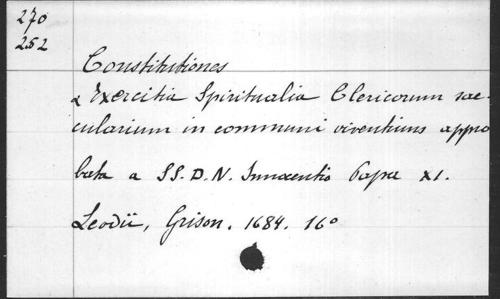 270
252
Constitutiones
& Exercitia Spiritualia Clericorum sae-
cularium in communi viventiums appro
bata a SS. D. N. Innocentio Papa XI.
Leodii, Grison. 1684. 16°